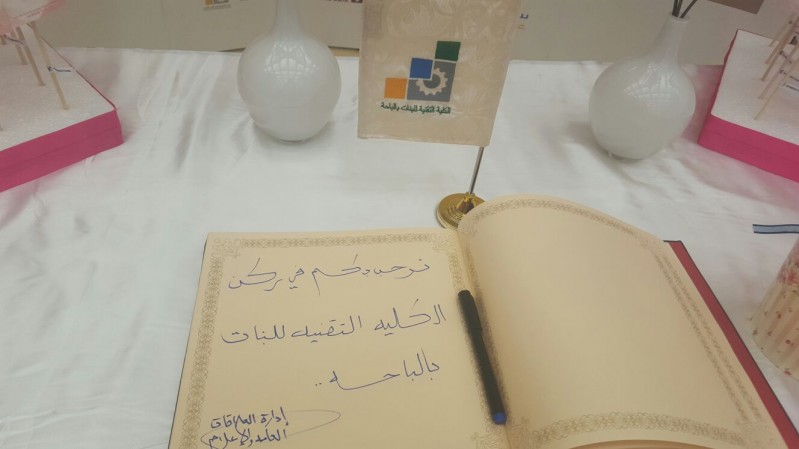 الكلية التقنية للبنات بالباحة
نرحب بكم في ركن
الكليه التقنيه للبنات
بالباحه..
إدارة العلاقات
العامة والإعلام